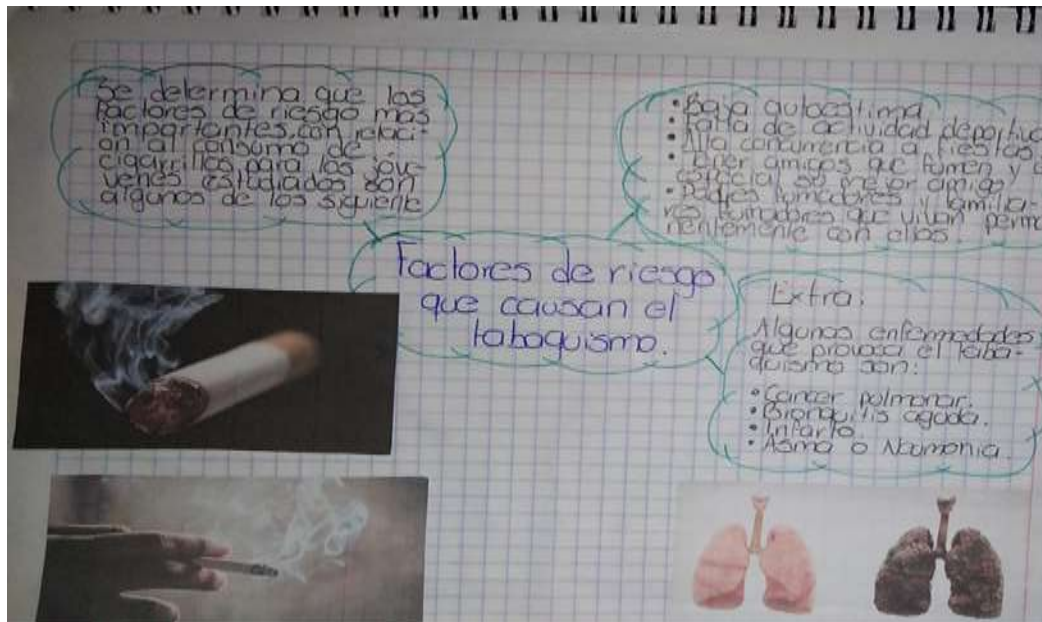 Se determina que los
factores de riesgo más
importantes, con relaci-
ón al consumo de
cigarrillos para los jóve-
venes estudiados son
algunos de los siguiente
• Baja autoestima.
• Falta de actividad deportiva
• Alta concurrencia a fiestas.
• Tener amigos que fumen y
especial su mejor amigo.
• Padres fumadores y familia-
res fumadores que vivan perma
nentemente con ellos.
Factores de riesgo
que causan el
tabaquismo.
Extra:
Algunas enfermedades
que provoca el taba-
quismo son:
• Cancer pulmonar.
• Bronquitis aguda.
• Infarto
• Asma o Neumonia.